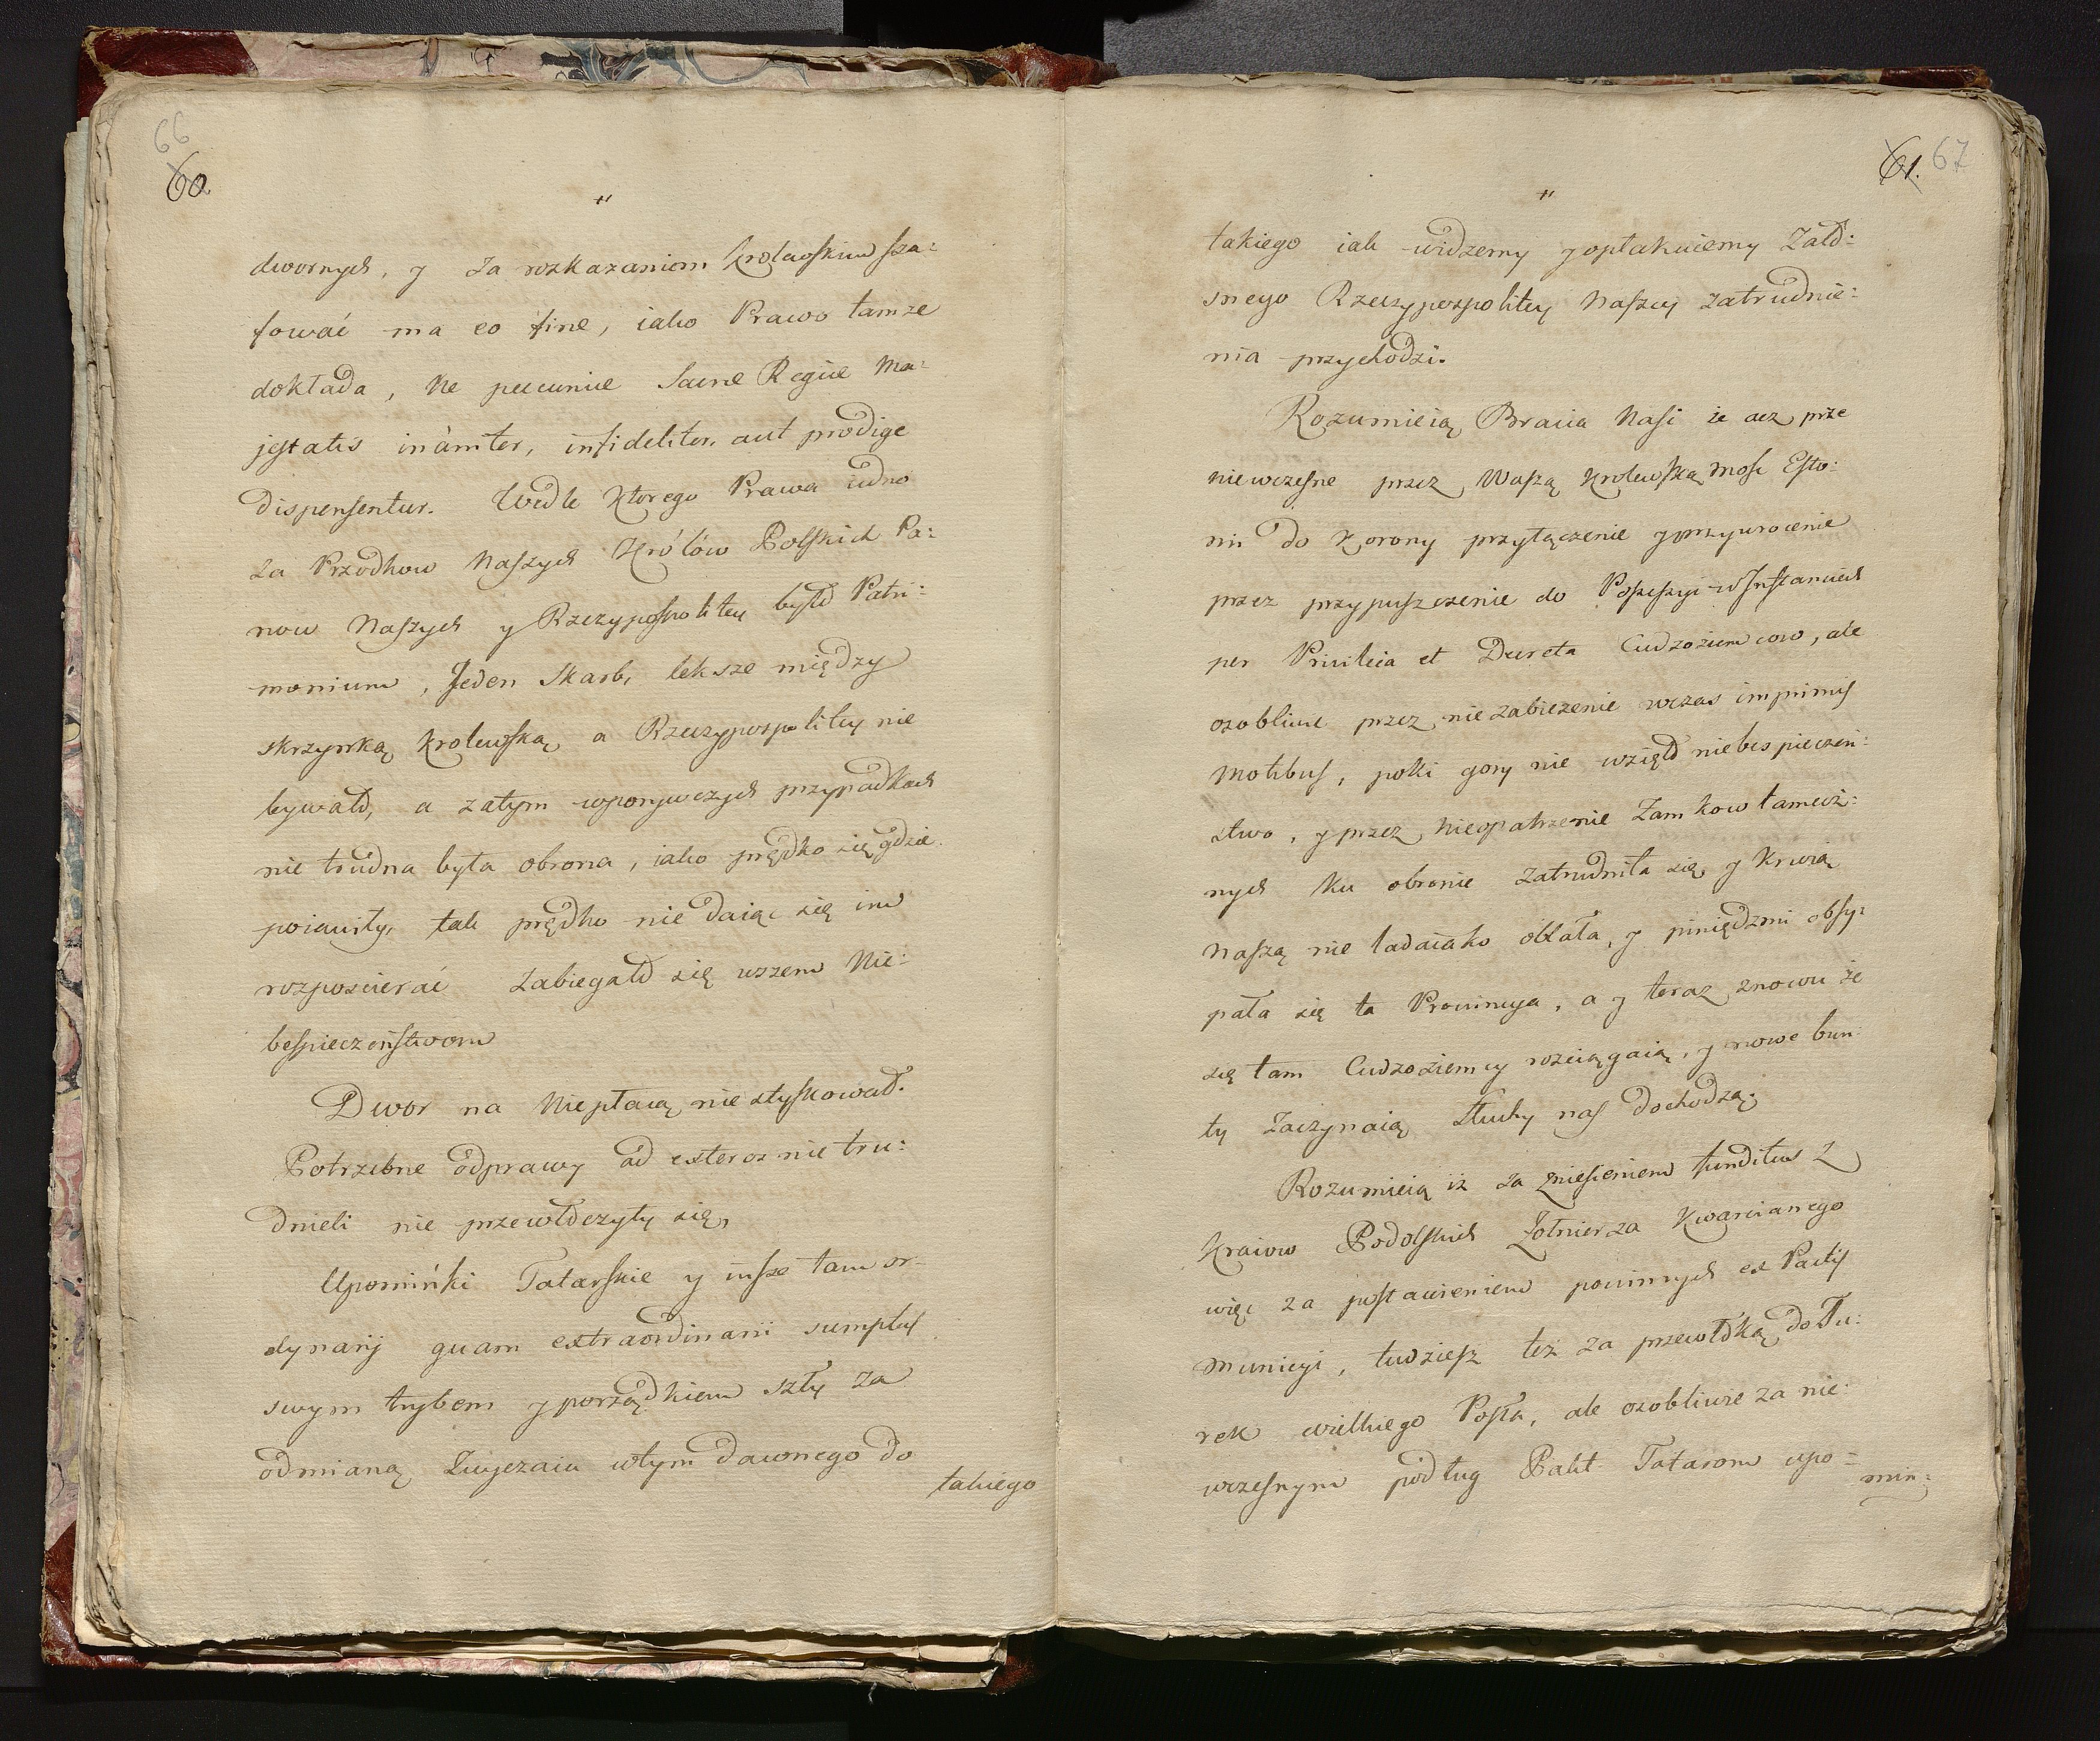 66
60
"
dwornych, y za rozkazaniem krolewskim sza:
fować ma eo fine, iako Prawo tamże
dokłada, Ne pecuniæ Sacræ Regiæ Ma:
jestatis inaniter, infideliter, aut prodige
dispensentur. Wedle ktorego Prawa iedno
za Przodkow Naszych Królów Polskich Pa:
now Naszych y Rzeczypospolitey było Patri:
monium, Jeden Skarb, leksze między
skrzynką krolewską a Rzeczypospolitey nie
bywało, a zatym w porywczych przypadkach
nie trudna była obrona, iako prędko się gdzie
poiawiły, tak prędko nie daiąc się im
rozposcierać zabiegało się wszem Nie:
bespieczeństwom
Dwor na Niepłacą nie styskował.
Potrzebne odprawy ad exteros nie tru:
dnieli nie przewłoczyły się,
Upominki Tatarskie y insze tam or:
dynarij quam extraordinarii sumptus
swym trybem y porządkiem szły za
odmianą Zwyczaiu w tym dawnego do
takiego
61. 67
"
takiego iak widzemy y opłakuiemy żało:
snego Rzeczypospolitey Naszey zatrudnie:
nia przychodzi.
Rozumieią Bracia Nasi że acz prze
niewczesne przez Waszą Krolewską Mosc Esto:
nii do Korony przyłączenie y przywrocenie
przez przypuszczenie do Possessyi w Inflanciech
per Privileia et Decreta Cudzoziemcow, ale
osobliwe przez nie zabieżenie wczas imprimis
motibus, poki gory nie wzięło niebespieczeń:
stwo, y przez Nieopatrzenie Zamkow tamecz:
nych ku obronie zatrudniła się y krwią
naszą nie ladaiako oblała, y piniędzmi obsy:
pała się ta Prowincya, a y teraz znowu że
się tam Cudzoziemcy rościągaią, y nowe bun
ty zaczynaią słuchy nas dochodzą.
Rozumieią iż za zniesieniem funditus z
Kraiow Podolskich Żołnierza Kwarcianego
więc za postawieniem powinnych ex Pactis
municyi, tudziesz też za przewłoką do Tu:
rek wielkiego Posła, ale osobliwie za nie:
wczesnym podług Pakt Tatarom upo:
min: